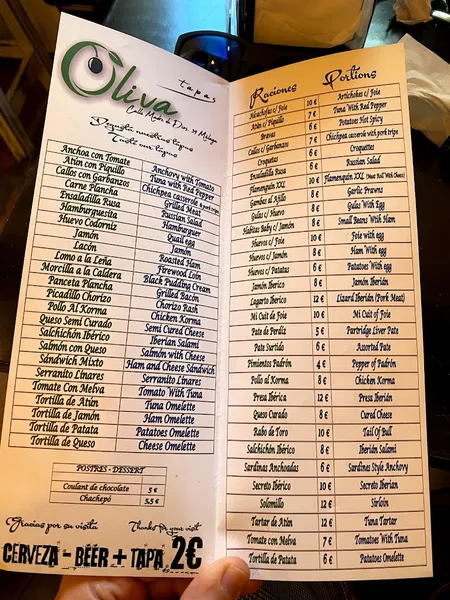 Oliva
tapas
Calle Madre de Dios, 39 Málaga
Degusta nuestras tapas
Taste our tapas
Anchoa con Tomate Anchovy with Tomato
Atún con Piquillo Tuna with Red Pepper
Callos con Garbanzos Chickpea casserole w pork tripe
Carne Plancha Grilled Meat
Ensaladilla Rusa Russian Salad
Hamburguesita Hamburguer
Huevo Codorniz Quail egg
Jamón Jamón
Lacón Roasted Ham
Lomo a la Leña Firewood Loin
Morcilla a la Caldera Black Pudding Cream
Panceta Plancha Grilled Bacón
Picadillo Chorizo Chorizo Rash
Pollo Al Korma Chicken Korma
Queso Semi Curado Semi Cured Cheese
Salchichón Ibérico Iberian Salami
Salmón con Queso Salmón with Cheese
Sándwich Mixto Ham and Cheese Sándwich
Serranito Linares Serranito Linares
Tomate Con Melva Tomato With Tuna
Tortilla de Atún Tuna Omelette
Tortilla de Jamón Ham Omelette
Tortilla de Patata Patatoes Omelette
Tortilla de Queso Cheese Omelette
POSTRES - DESSERT
Coulant de chocolate 5 €
Chachepó 5,5 €
Gracias por su visita Thanks for your visit
CERVEZA - BEER + TAPA 2€
Raciones Portions
Alcachofas c/ Foie 10 € Artichokes c/ Foie
Atún c/ Piquillo Tuna With Red Pepper
Bravas Potatoes Hot Spicy
Callos c/ Garbanzos 7 € Chickpea casserole with pork tripe
Croquetas 6 € Croquettes
Ensaladilla Rusa 6 € Russian Salad
Flamenquín XXL 10 € Flamenquin XXL (Meat Roll With Cheese)
Gambas al Ajillo 8 € Garlic Prawns
Gulas c/ Huevo 8 € Gulas With Egg
Habitas Baby c/ Jamón 8 € Small Beans With Ham
Huevos c/ Foie 10 € Foie with egg
Huevos c/ Jamón 8 € Ham With egg
Huevos c/ Patatas 6 € Patatoes With egg
Jamón Ibérico 8 € Jamón Iberián
Lagarto Ibérico 12 € Lizard Iberián (Pork Meat)
Mi Cuit de Foie 10 € Mi Cuit of Foie
Pate de Perdiz 5 € Partridge Liver Pate
Pate Surtido 6 € Assorted Pate
Pimientos Padrón 4 € Pepper of Padrón
Pollo al Korma 8 € Chicken Korma
Presa Ibérica 12 € Presa Iberián
Queso Curado 8 € Cured Cheese
Rabo de Toro 10 € Tail Of Bull
Salchichón Ibérico 8 € Iberián Salami
Sardinas Anchoadas 6 € Sardines Style Anchovy
Secreto Ibérico 10 € Secreto Iberian
Solomillo 12 € Sirloin
Tartar de Atún 12 € Tuna Tartar
Tomate con Melva 7 € Tomatoes With Tuna
Tortilla de Patata 6 € Patatoes Omelette